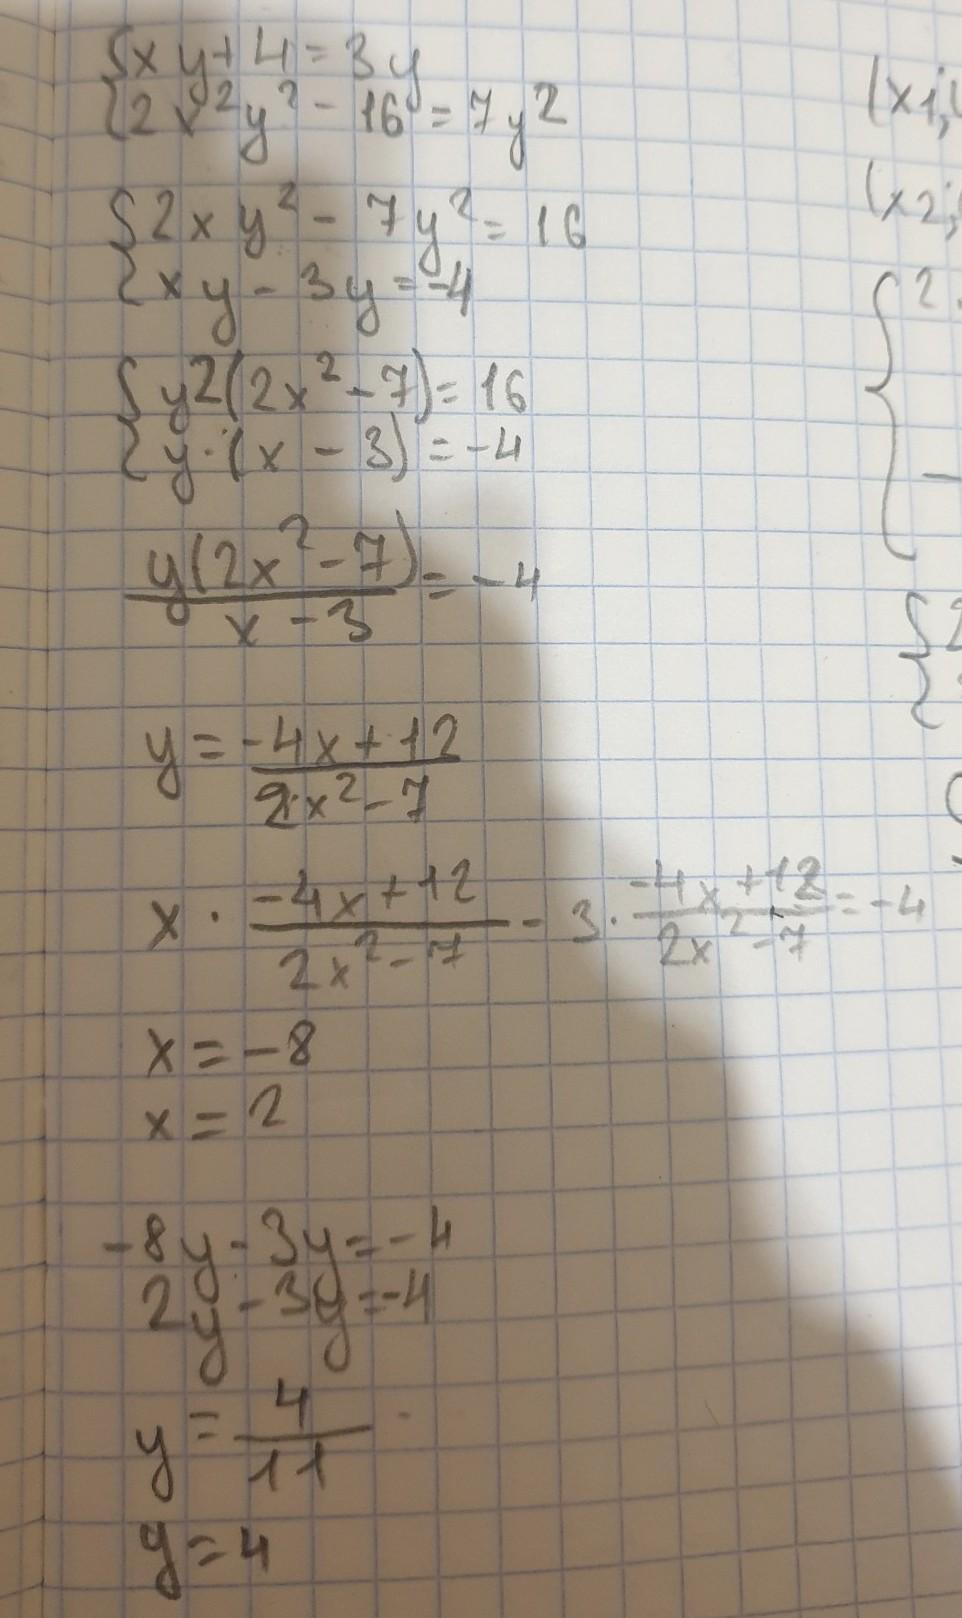 {xy+4=3y
{2x²y²-16=7y2
{2xy²-7y²=16
{xy-3y=-4
{y2(2x²-7)=16
{y·(x-3)=-4
y(2x²-7)/x-3=-4
y=-4x+12/2x²-7
x·-4x+12/2x²-7-3·-4x+12/2x²-7=-4
x=-8
x=2
-8y-3y=-4
2y-3y=-4
y=4/11
y=4
(x1;
(x2;
{2
{2